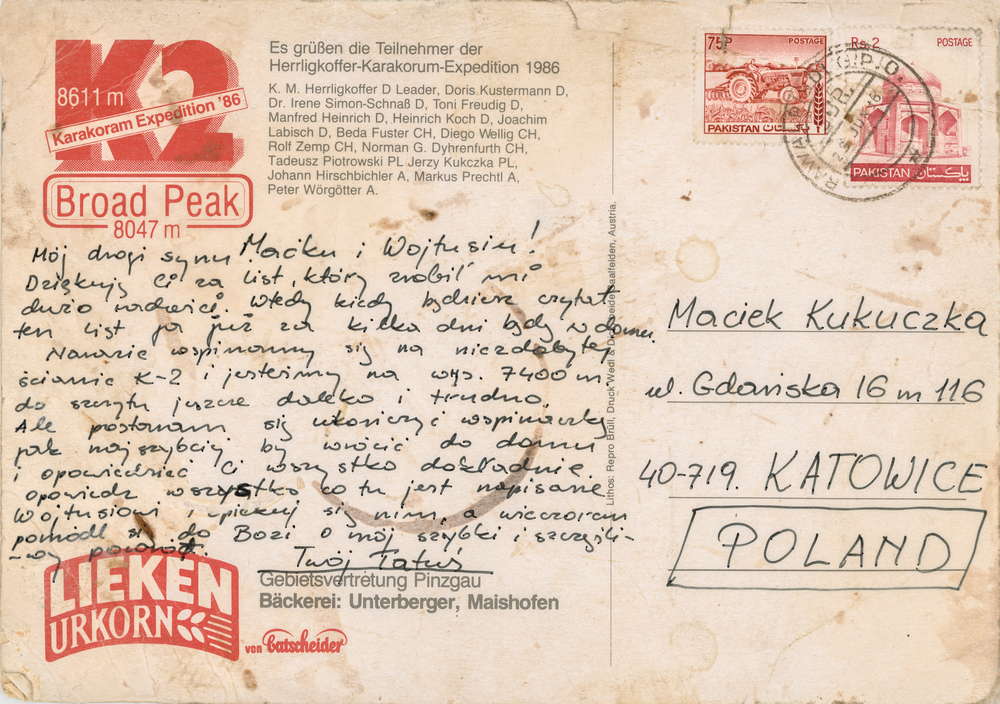 K2
8611 m
Karakoram Expedition '86
Broad Peak
8047 m
Es grüßen die Teilnehmer der
Herrligkoffer-Karakorum-Expedition 1986
K. M. Herrligkoffer D Leader, Doris Kustermann D,
Dr. Irene Simon-Schnaß D, Toni Freudig D,
Manfred Heinrich D, Heinrich Koch D, Joachim
Labisch D, Beda Fuster CH, Diego Wellig CH,
Rolf Zemp CH, Norman G. Dyhrenfurth CH,
Tadeusz Piotrowski PL Jerzy Kukczka PL,
Johann Hirschbichler A, Markus Prechtl A,
Peter Wörgötter A.
75P POSTAGE
PAKISTAN پاکستان
Rs. 2 POSTAGE
PAKISTAN پاکستان
G.P.O.
Mój drogi synu Maćku i Wojtusiu!
Dziękuję Ci za list, który zrobił mi
dużo radości. Wtedy kiedy będziesz czytał
ten list ja już za kilka dni będę w domu.
Narazie wspinamy się na niezdobytej
ścianie K-2 i jesteśmy na wys. 7400 m
do szczytu jeszcze daleko i trudno.
Ale postaram się ukończyć wspinaczkę
jak najszybciej by wrócić do domu
i opowiedzieć Ci wszystko dokładnie.
opowiedz wszystko co tu jest napisane
Wojtusiowi i opiekuj się nim, a wieczorem
pomódl się do Bozi o mój szybki i szczęśli-
wy powrót.
Twój Tatuś
Maciek Kukuczka
ul. Gdańska 16 m 116
40-719. KATOWICE
POLAND
Lithos: Repro Brüll, Druck Wedl & Dick, beide Saalfelden, Austria.
LIEKEN
URKORN
von Gatscheider
Gebietsvertretung Pinzgau
Bäckerei: Unterberger, Maishofen